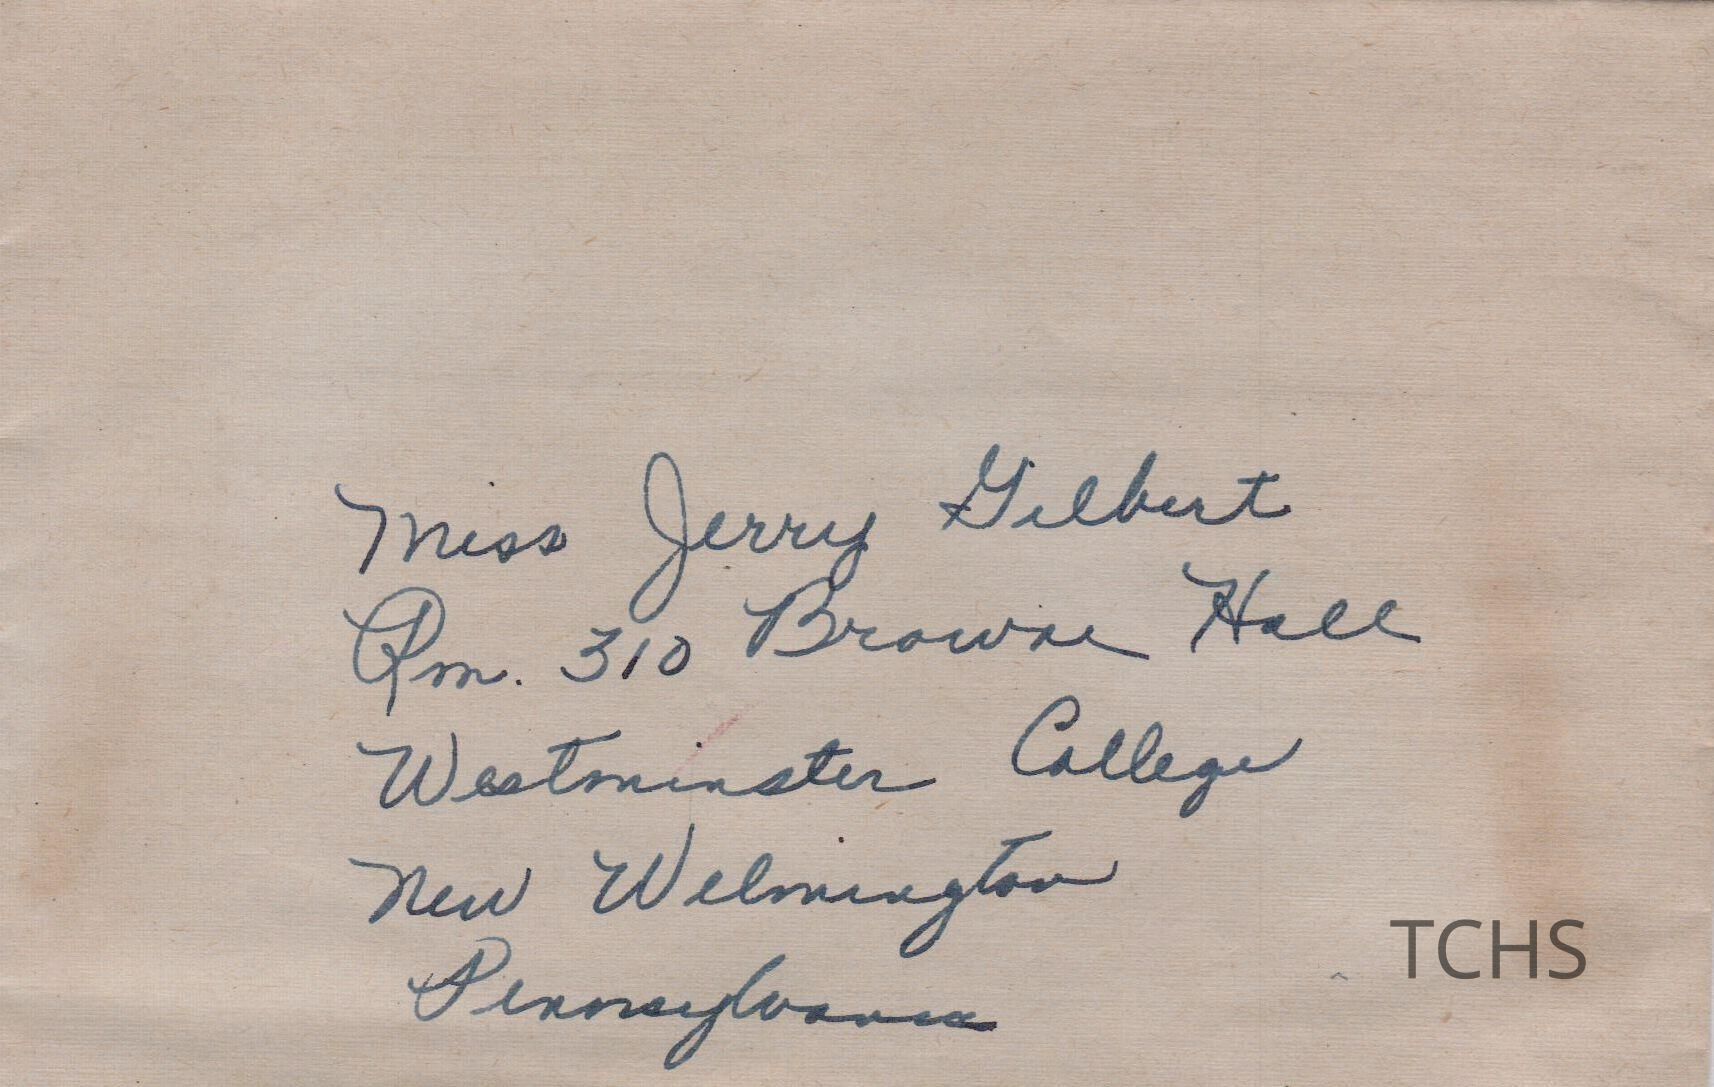 Miss Jerry Gilbert
Rm. 310 Browne Hall
Westminster College
New Wilmington
Pennsylvania
TCHS